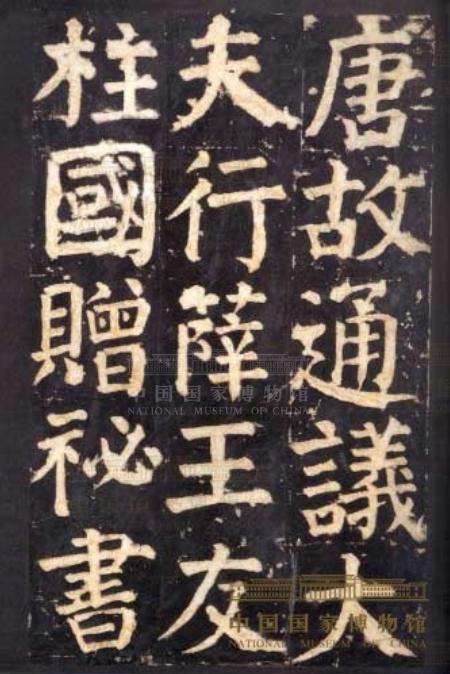 唐故通議大
夫行薛王友
柱國贈祕書
中国国家博物馆
NATIONAL MUSEUM OF CHINA
中国国家博物馆
NATIONAL MUSEUM OF CHINA